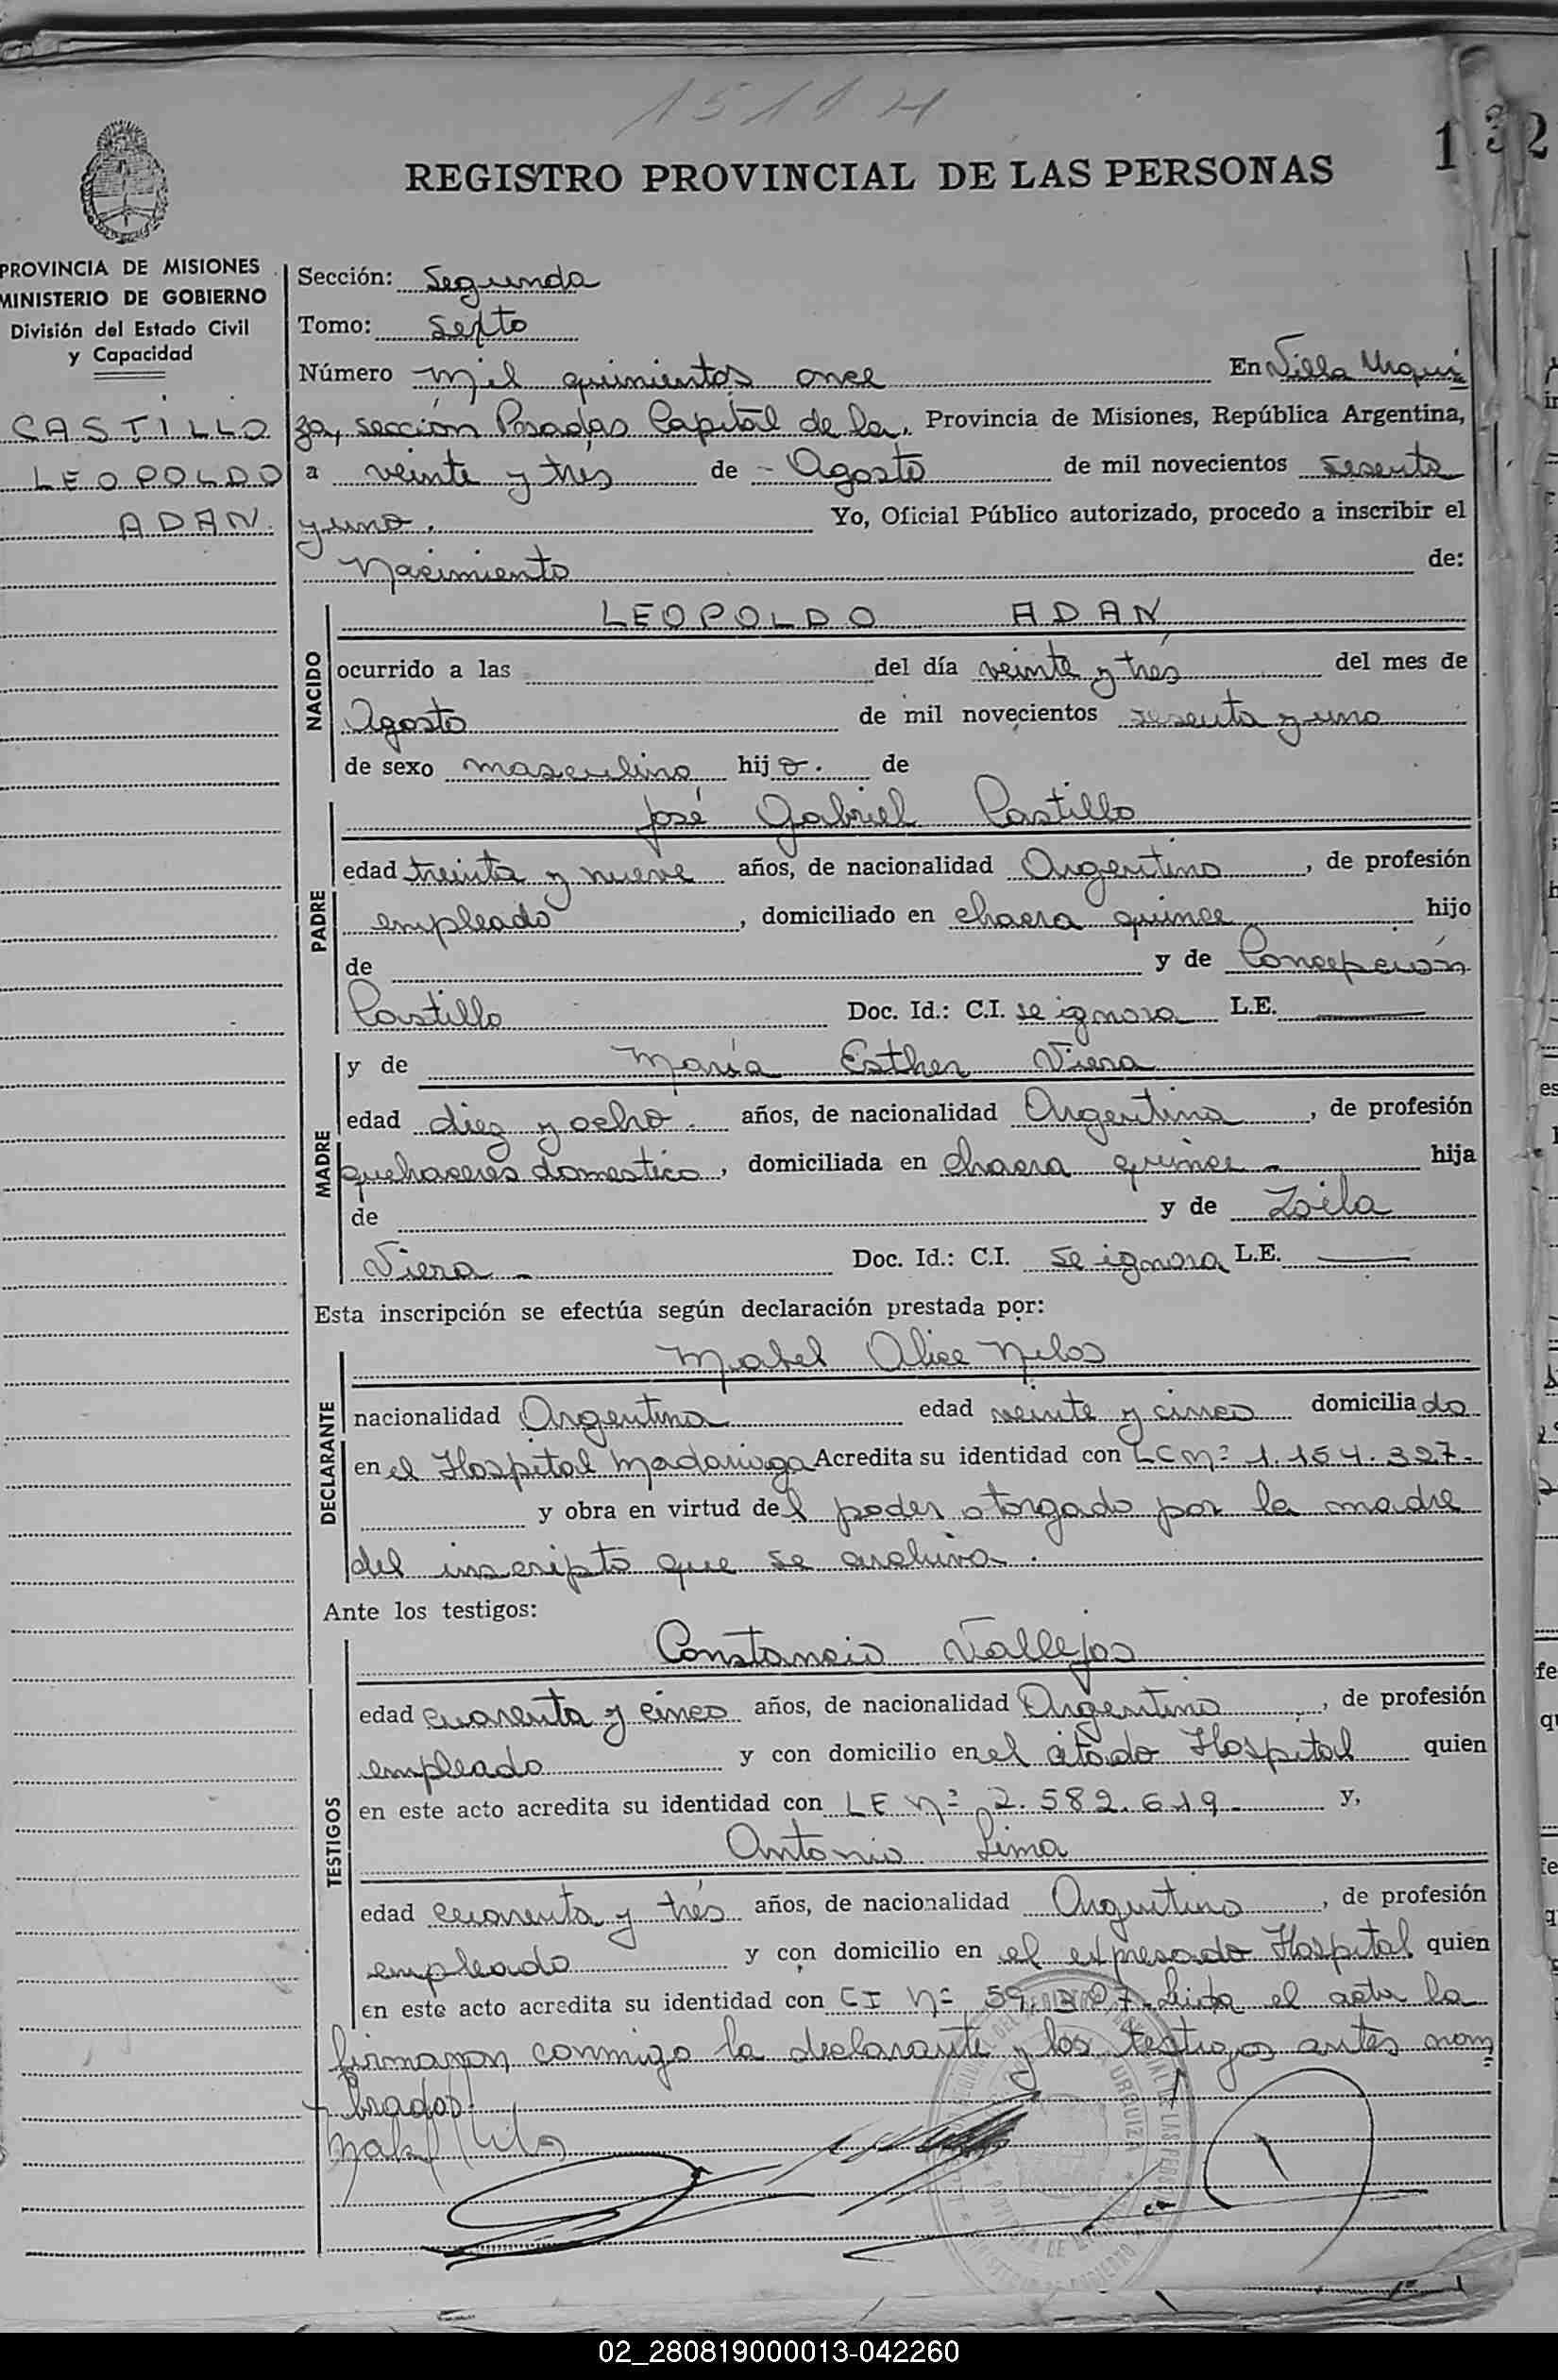 1511 H
132
REGISTRO PROVINCIAL DE LAS PERSONAS
PROVINCIA DE MISIONES
MINISTERIO DE GOBIERNO
División del Estado Civil
y Capacidad
CASTILLO
LEOPOLDO
ADAN
Sección: Segunda
Tomo: Sexto
Número mil quinientos once En Villa Urqui
za, sección Posadas Capital de la, Provincia de Misiones, República Argentina,
a veinte y trés de - Agosto de mil novecientos sesenta
y uno. Yo, Oficial Público autorizado, procedo a inscribir el
Nacimiento de:
NACIDO
LEOPOLDO ADAN
ocurrido a las del día veinte y trés del mes de
Agosto de mil novecientos sesenta y uno
de sexo masculino hijo. de
PADRE
José Gabriel Castillo
edad treinta y nueve años, de nacionalidad Argentino, de profesión
empleado, domiciliado en chacra quince hijo
de y de Concepción
Castillo Doc. Id.: C.I. se ignora L.E. ——
MADRE
y de María Esther Viera
edad diez y ocho. años, de nacionalidad Argentina, de profesión
quehaceres domestico, domiciliada en chacra quince - hija
de y de Zoila
Viera - Doc. Id.: C.I. se ignora L.E. ——
Esta inscripción se efectúa según declaración prestada por:
DECLARANTE
Mabel Alice Nilos
nacionalidad Argentina edad veinte y cinco domiciliado
en el Hospital Madariaga Acredita su identidad con LC nº 1.154.327.-
y obra en virtud del poder otorgado por la madre
del inscripto que se archiva.
Ante los testigos:
TESTIGOS
Constancio Vallejos
edad cuarenta y cinco años, de nacionalidad Argentino, de profesión
empleado y con domicilio en el citado Hospital quien
en este acto acredita su identidad con LE nº 2.582.619.- y,
Antonio Lima
edad cuarenta y trés años, de nacionalidad Argentino, de profesión
empleado y con domicilio en el expresado Hospital quien
en este acto acredita su identidad con CI nº 59.327. Leida el acta la
firmaron conmigo la declarante y los testigos antes nom
brados.
02_280819000013-042260